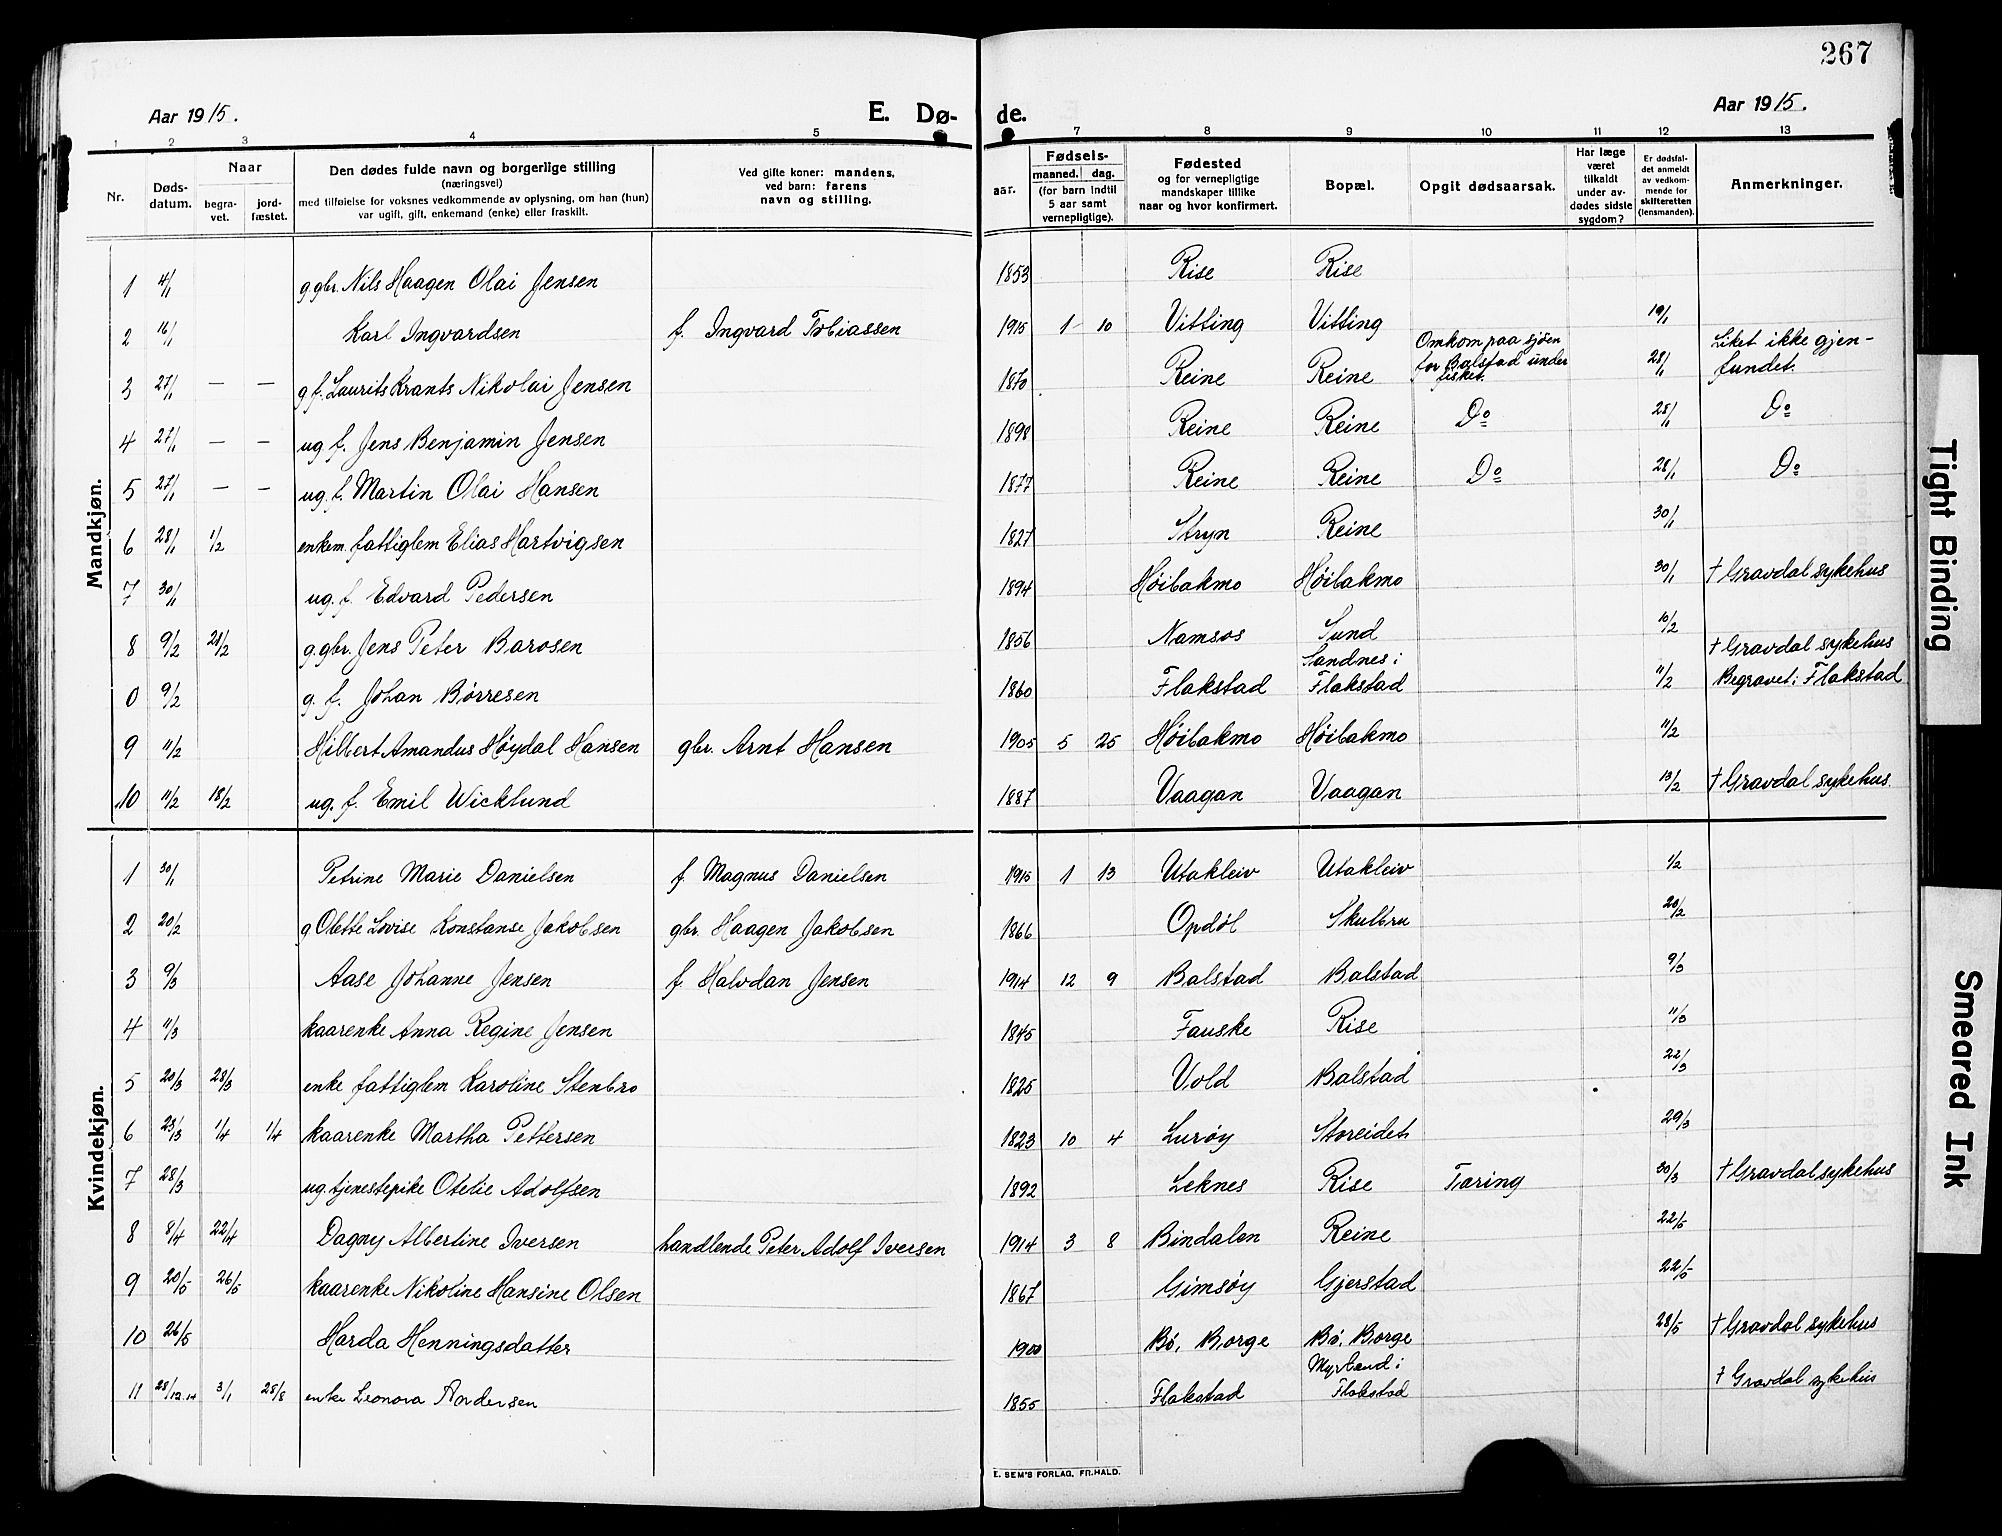 267
Aar 1915. E. Dø- de. Aar 1915.
1 2 3 4 5 7 8 9 10 11 12 13
Nr. Døds-datum. Naar begra-vet. jord-fæstet. Den dødes fulde navn og borgerlige stilling (næringsvei) med tilføielse for voksnes vedkommende av oplysning, om han (hun) var ugift, gift, enkemand (enke) eller fraskilt. Ved gifte koner: mandens, ved barn: farens navn og stilling. aar. Fødsels- maaned. dag. (for barn indtil 5 aar samt vernepligtige). Fødested og for vernepligtige mandskaper tillike naar og hvor konfirmert. Bopæl. Opgit dødsaarsak. Har læge været tilkaldt under av-dødes sidste sygdom? Er dødsfal-det anmeldt av vedkom-mende for skifteretten (lensmanden). Anmerkninger.
Mandkjøn.
1 4/1 g. gbr. Nils Haagen Olai Jensen 1853 Rise Rise
2 16/1 Karl Ingvardsen f. Ingvard Tobiassen 1915 1 10 Vitting Vitting 19/1
3 27/1 — — g f. Laurits Krants Nikolai Jensen 1870 Reine Reine Omkom paa sjøen for Balstad under fisket. 28/1 Liket ikke gjen-fundet.
4 27/1 — — ug. f. Jens Benjamin Jensen 1898 Reine Reine Do 28/1 Do
5 27/1 — — ug. f. Martin Olai Hansen 1877 Reine Reine Do 28/1 Do
6 28/1 1/2 enkem. fattiglem Elias Hartvigsen 1827 Stryn Reine 30/1
7 30/1 ug. f. Edvard Pedersen 1894 Høibakmo Høibakmo 30/1 † Gravdal sykehus
8 9/2 21/2 g. gbr. Jens Peter Barosen 1856 Namsos Sund 10/2 † Gravdal sykehus
0 9/2 g. f. Johan Børresen 1860 Flakstad Sandnes i Flakstad 11/2 Begravet i Flakstad
9 11/2 Hilbert Amandus Høydal Hansen gbr. Arnt Hansen 1905 5 25 Høibakmo Høibakmo 11/2
10 11/2 18/2 ug. f. Emil Wicklund 1887 Vaagan Vaagan 13/2 † Gravdal sykehus.
Kvindekjøn.
1 30/1 Petrine Marie Danielsen f Magnus Danielsen 1915 1 13 Utakleiv Utakleiv 1/2
2 20/2 g Olette Lovise Konstanse Jakobsen gbr. Haagen Jakobsen 1866 Opdøl Skulbru 20/2
3 9/3 Aase Johanne Jensen f. Halvdan Jensen 1914 12 9 Balstad Balstad 9/3
4 11/3 kaarenke Anna Regine Jensen 1845 Fauske Rise 11/3
5 20/3 28/3 enke fattiglem Karoline Stenbro 1825 Vold Balstad 22/3
6 23/3 1/4 1/4 kaarenke Martha Pettersen 1823 10 4 Lurøy Storeidet 29/3
7 28/3 ug. tjenestepike Otelie Adolfsen 1892 Leknes Rise Tæring 30/3 † Gravdal sykehus
8 8/4 22/4 Dagny Albertine Iversen handlende Peter Adolf Iversen 1914 3 8 Bindalen Reine 22/5
9 20/5 26/5 kaarenke Nikoline Hansine Olsen 1867 Gimsøy Gjerstad 22/5
10 26/5 Harda Henningsdatter 1900 Bø, Borge Bø, Borge 28/5 † Gravdal sykehus
11 28/12.14 3/1 25/8 enke Leonora Andersen 1855 Flakstad Myrland i Flakstad † Gravdal sykehus
E. SEM'S FORLAG, FR.HALD.
Tight Binding
Smeared Ink